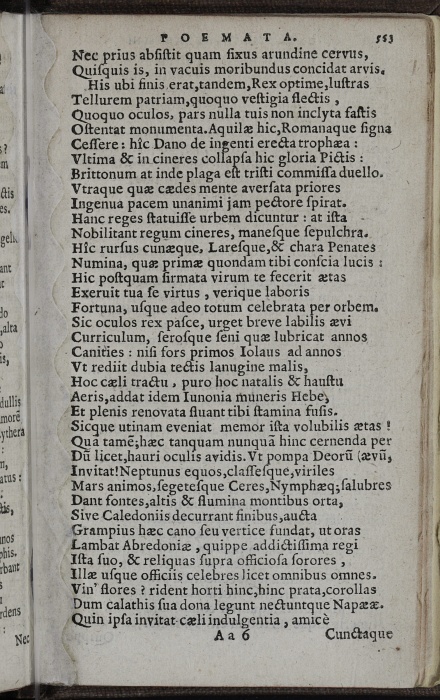 POEMATA. 553
Nec prius absistit quam fixus arundine cervus,
Quisquis is, in vacuis moribundus concidat arvis.
His ubi finis erat, tandem, Rex optime, lustras
Tellurem patriam, quoquo vestigia flectis,
Quoquo oculos, pars nulla tuis non inclyta fastis
Ostentat monumenta. Aquilæ hic, Romanaque signa
Cessere: hîc Dano de ingenti erecta trophæa:
Vltima & in cineres collapsa hic gloria Pictis:
Brittonum at inde plaga est tristi commissa duello.
Vtraque quæ cædes mente aversata priores
Ingenua pacem unanimi jam pectore spirat.
Hanc reges statuisse urbem dicuntur: at ista
Nobilitant regum cineres, manesque sepulchra.
Hîc rursus cunæque, Laresque, & chara Penates
Numina, quæ primæ quondam tibi conscia lucis:
Hic postquam firmata virum te fecerit ætas
Exeruit tua se virtus, verique laboris
Fortuna, usque adeo totum celebrata per orbem.
Sic oculos rex pasce, urget breve labilis ævi
Curriculum, serosque seni quæ lubricat annos
Canities: nisi fors primos Iolaus ad annos
Vt rediit dubia tectis lanugine malis,
Hoc cæli tractu, puro hoc natalis & haustu
Aeris, addat idem Iunonia muneris Hebe,
Et plenis renovata fluant tibi stamina fusis.
Sicque utinam eveniat memor ista volubilis ætas!
Qua tamē; hæc tanquam nunquā hinc cernenda per
Dū licet, hauri oculis avidis. Vt pompa Deorū (ævū,
Invitat! Neptunus equos, classesque, viriles
Mars animos, segetesque Ceres, Nymphæq; salubres
Dant fontes, altis & flumina montibus orta,
Sive Caledoniis decurrant finibus, aucta
Grampius hæc cano seu vertice fundat, ut oras
Lambat Abredoniæ, quippe addictissima regi
Ista suo, & reliquas supra officiosa sorores,
Illæ usque officiis celebres licet omnibus omnes.
Vin' flores? rident horti hinc, hinc prata, corollas
Dum calathis sua dona legunt nectuntque Napææ.
Quin ipsa invitat cæli indulgentia, amicè
Aa 6 Cunctaque